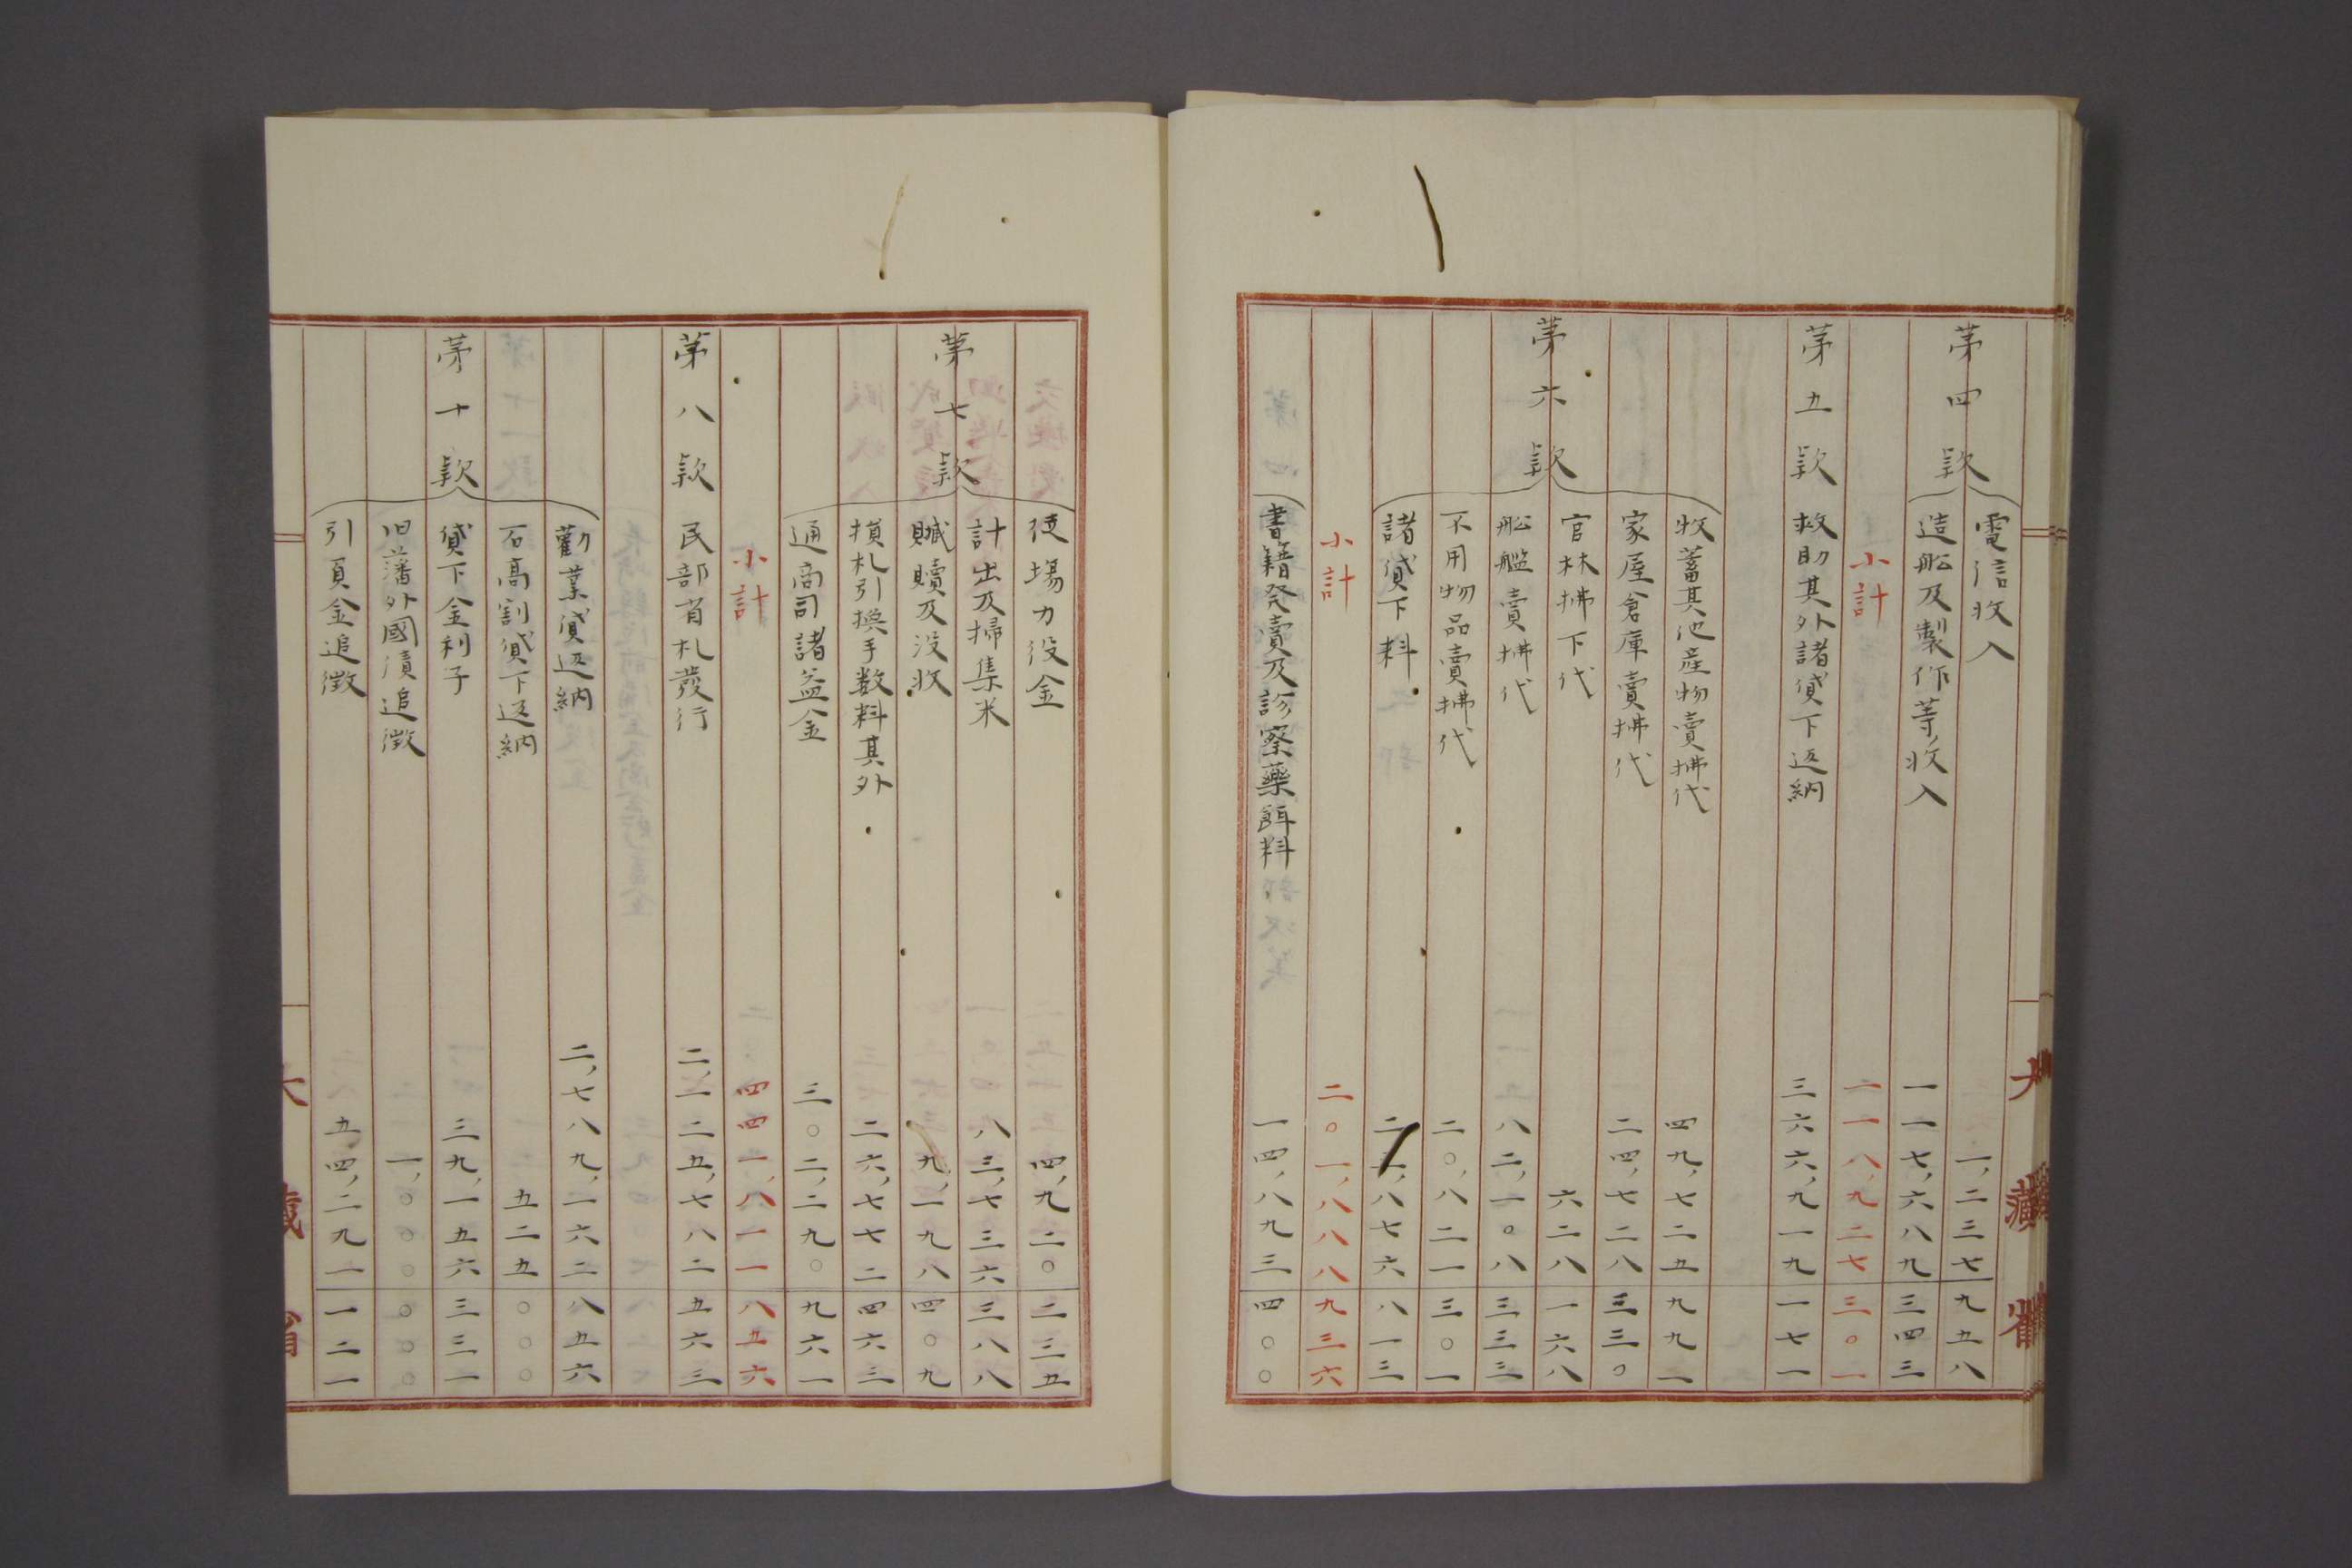 第四款
電信收入 一,二三七 九五八
造船及製作等收入 一一七,六八九 三四三
小計 一一八,九二七 三〇一
第五款 救助其外諸貸下返納 三六六,九一九 一七一
第六款
牧蓄其他産物賣拂代 四九,七二五 九九一
家屋倉庫賣拂代 二四,七二八 三三〇
官林拂下代 六二八 一六八
船艦賣拂代 八二,一〇八 三三三
不用物品賣拂代 二〇,八二一 三〇一
諸貸下料 二三,八七六 八一三
小計 二〇一,八八八 九三六
書籍発賣及診察藥餌料 一四,八九三 四〇〇
大藏省
第七款
徒場力役金 四,九二〇 二三五
計出及掃集米 八三,七三六 三八八
贓贖及没收 九,一九八 四〇九
損札引換手数料其外 二六,七七二 四六三
通商司諸益金 三〇二,二九〇 九六一
小計 四四一,八一一 八五六
第八款 民部省札發行 二,一二五,七八二 五六三
第十款
勸業貸返納 二,七八九,一六二 八五六
石高割貸下返納 五二五 〇〇〇
貸下金利子 三九,一五六 三三一
旧藩外國債追徴 一,〇〇〇 〇〇〇
引負金追徴 五四,二九一 一二一
大藏省